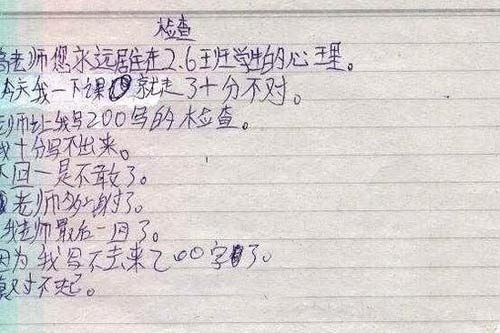 检查
老师您永远居住在2.6班学生的心理。
今天我一下课就走了十分不对。
老师让我写200写的检查。
我十分写不出来。
下回一是不敢了。
老师多谢了。
老师最后一回了。
因为我写不去来200字了。
真对不起。